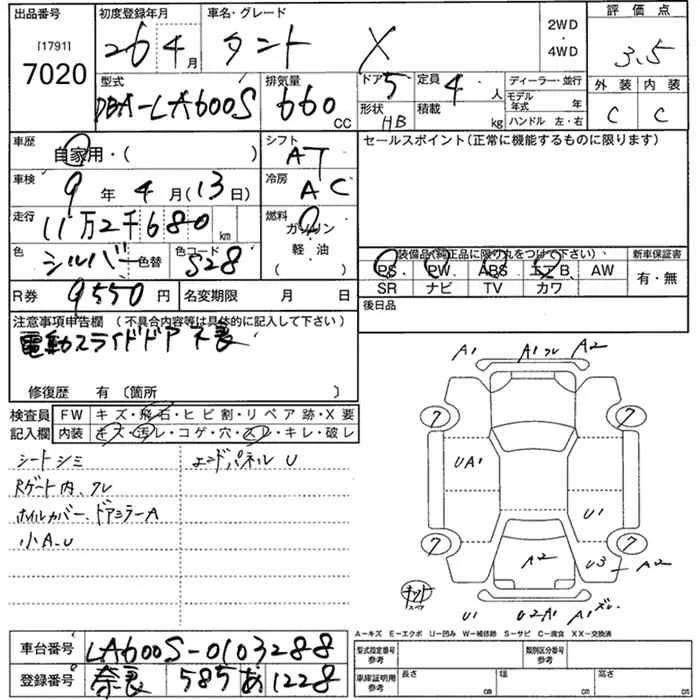 出品番号
[1791]
7020
初度登録年月
26 4月
車名・グレード
タント X
2WD
・
4WD
評価点
3.5
型式
DBA-LA600S
排気量
660 CC
ドア 5
形状 HB
定員 4 人
積載 kg
ディーラー・並行
モデル年式 年
ハンドル 左・右
外装 内装
C C
車歴
自家用・( )
シフト
AT
セールスポイント(正常に機能するものに限ります)
車検
9年 4月(13日)
冷房
AC
走行
11万2千680 km
燃料
ガソリン
軽・油
( )
色
シルバー
色替
色コード
S28
装備品(純正品に限り丸をつけて下さい)、
新車保証書
PS PW ABS エアB AW
SR ナビ TV カワ
有・無
R券
9550円
名変期限 月 日
後日品
注意事項申告欄 (不具合内容等は具体的に記入して下さい)
電動スライドドア不良
修復歴 有 〔箇所 〕
検査員記入欄
FW キズ・飛石・ヒビ割・リペア跡・X要
内装 キズ・汚レ・コゲ・穴・スレ・キレ・破レ
シートシミ
エンドパネル U
Rゲート内、クレ
ホイルカバー、ドアミラーA
小A.U
A1 A1 クレ A2
7 7
UA1
U1
7 7
A2
U3 A2
スペア
U1 U2A1 A1 ズレ
A−キズ E−エクボ U−凹み W−補修跡 S−サビ C−腐食 XX−交換済
車台番号
LA600S-0103288
型式指定番号
参考
類別区分番号
参考
登録番号
奈良 585 あ 1228
車庫証明用
参考
長さ cm
幅 cm
高さ cm